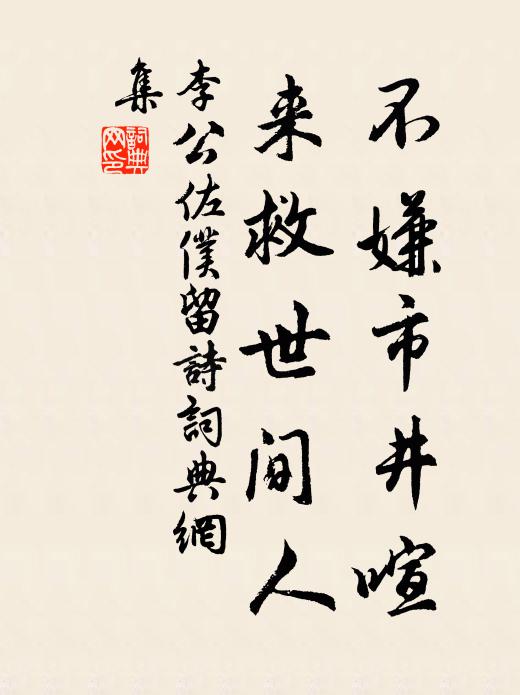 不嫌市井喧
来救世间人
李公佐僕留詩詞典網
集
詞典網印